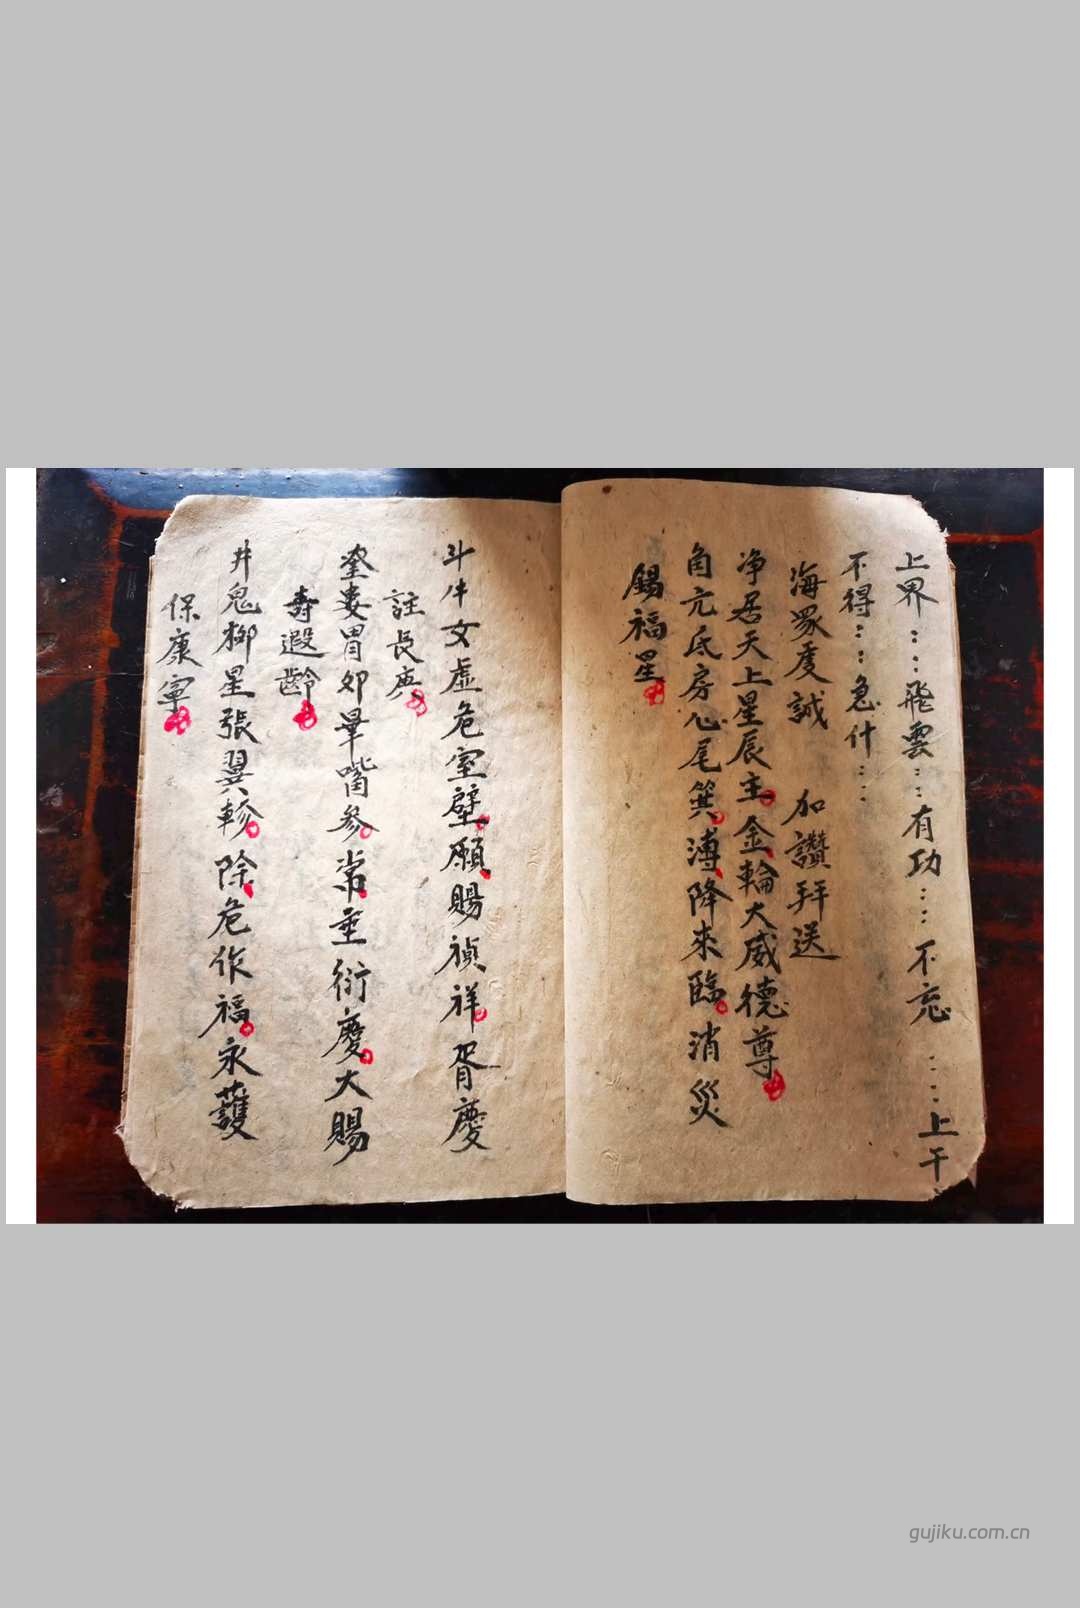 上界：：飛雲：：有功：：：不忘：：：上干
不得：：：急什：：：
海眾虔誠　加讚拜送
净居天上星辰主金輪大威德尊
角亢氐房心尾箕溥降來臨消災
錫福星
斗牛女虛危室壁願賜禎祥胥慶
註長庚
奎婁胃卯畢嘴參常垂衍慶大賜
壽遐齡
井鬼柳星張翼軫除危作福永護
保康寧
gujiku.com.cn